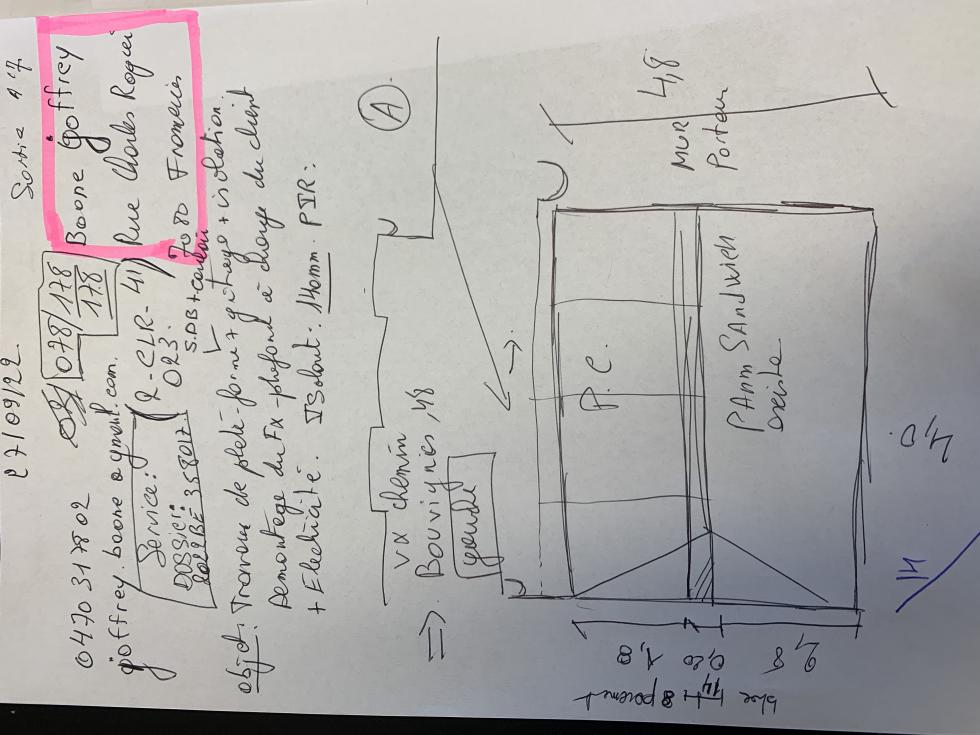 27/09/22.
Sortie N°7
0470 317802
078/178
178
Boone goffrey
goffrey.boone@gmail.com.
2-CLR-41
Rue Charles Rogier
Service:
023.
7080 Frameries
DOSSIER:
2022BE358017.
S.D.B + couloir
objet: Travaux de plate-forme + gitage + isolation.
Demontage du Fx-plafond à charge du client
+ Electricité. Isolant: 140mm. PIR:
A
⇒ vx chemin
Bouvignies, 48
gauche
→
4,8
MUR
Porteur
P.C.
PAnn SAndwich
existe
4,0.
1,8
0,20
2,8
bloc 14 + 8 parement